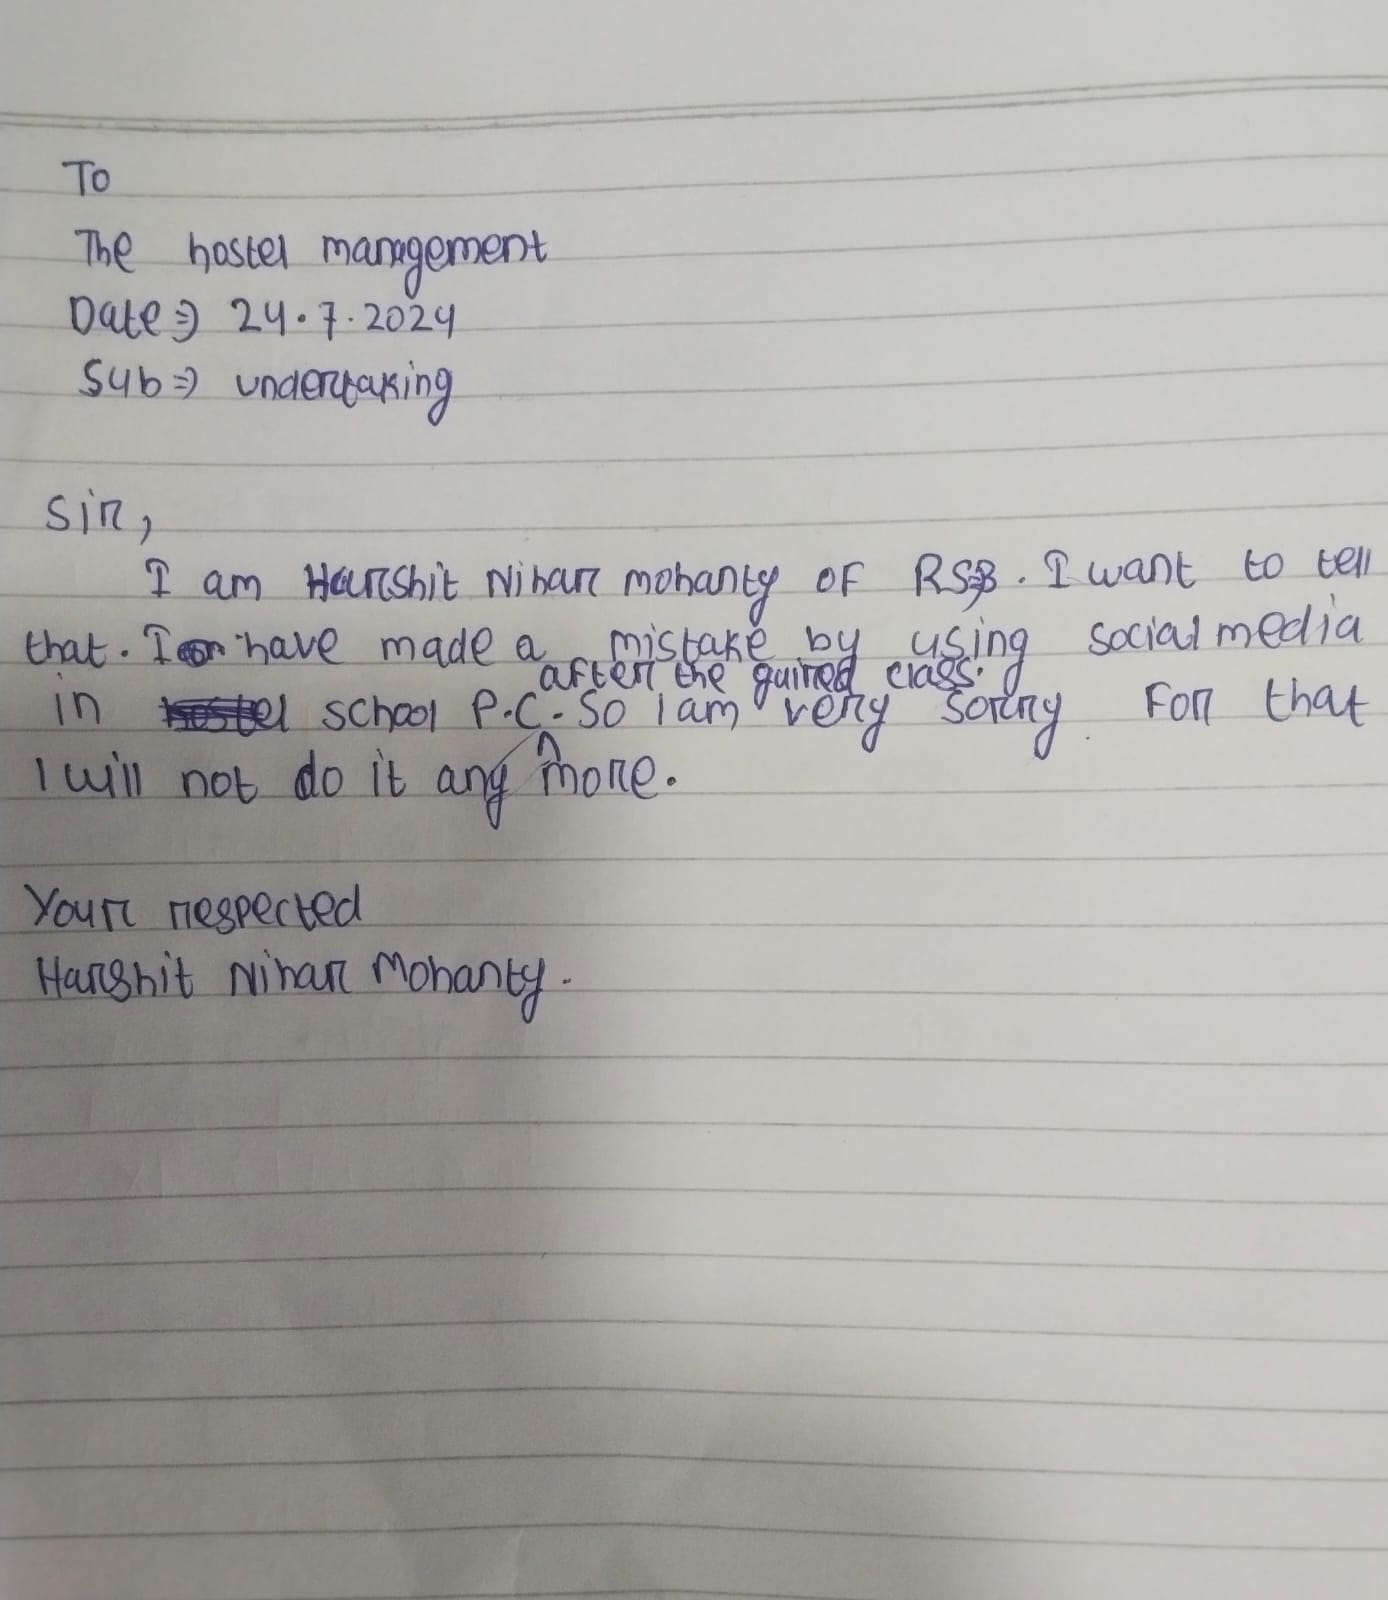 To
The hostel management
Date⇒ 24.7.2024
Sub⇒ undertaking
Sir,
I am Harshit Nihar mohanty of RSB. I want to tell
that. I have made a mistake by using social media
after the guired class.
in school P.C. So I am very sorry for that
I will not do it any more.
Your respected
Harshit Nihar Mohanty.